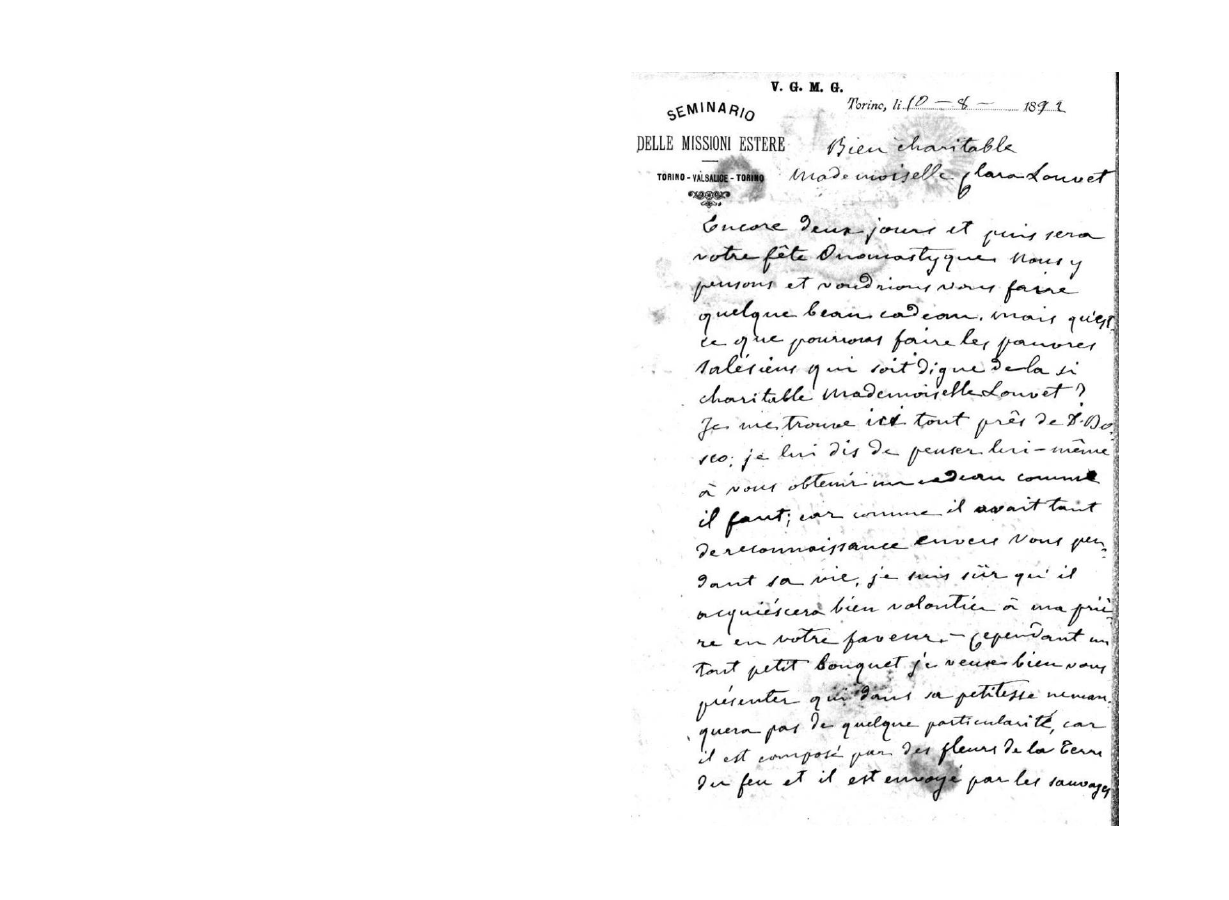 V. G. M. G.
SEMINARIO
DELLE MISSIONI ESTERE
TORINO - VALSALICE - TORINO
Torino, li 10 - 8 - 1892
Bien charitable
Mademoiselle Clara Louvet
Encore deux jours et puis sera
votre fête Onomastyque. Nous y
pensons et voudrions vous faire
quelque beau cadeau. Mais qu'est
ce que pourrons faire les pauvres
Salésiens qui soit digne de la si
charitable Mademoiselle Louvet ?
Je me trouve ici tout près de D. Bo-
sco: je lui dis de penser lui-même
à vous obtenir un cadeau comme
il faut; car comme il avait tant
de reconnaissance envers Vous pen-
dant sa vie, je suis sûr qu'il
acquiéscera bien volontier à ma priè-
re en votre faveur. - Cependant un
tout petit bouquet je veux bien vous
présenter qui dans sa petitesse ne man-
quera pas de quelque particularité, car
il est composé par des fleurs de la Terre
du feu et il est envoyé par les sauvages